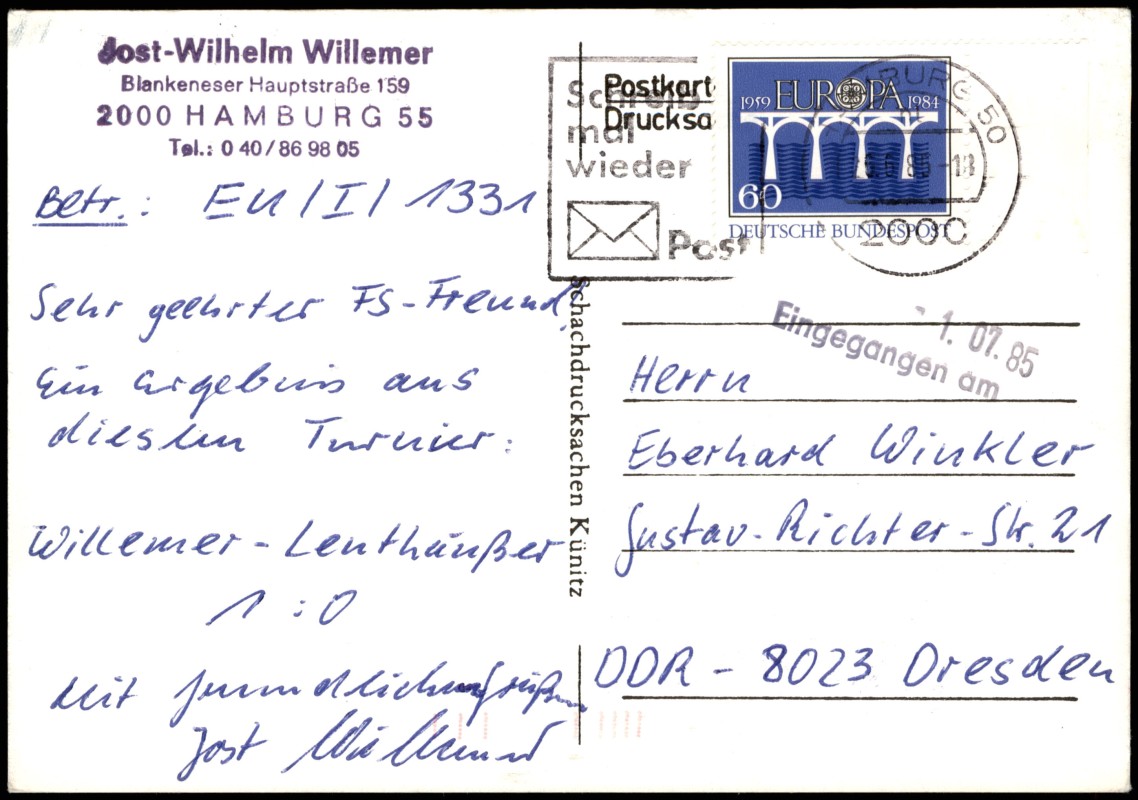 Jost-Wilhelm Willemer
Blankeneser Hauptstraße 159
2000 HAMBURG 55
Tel.: 0 40/86 98 05
Betr.: EU/I/1331
Sehr geehrter FS-Freund,
Ein Ergebnis aus
diesem Turnier:
Willemer-Lenthäußer
1:0
Mit freundlichen Grüßen
Jost Willemer
Postkart
Drucksa
Schreib
mal
wieder
Post
1959 EUROPA 1984
60
DEUTSCHE BUNDESPOST
BURG 50
85-18
2000
Schachdrucksachen Künitz
- 1. 07. 85
Eingegangen am
Herrn
Eberhard Winkler
Gustav-Richter-Str. 21
DDR - 8023 Dresden